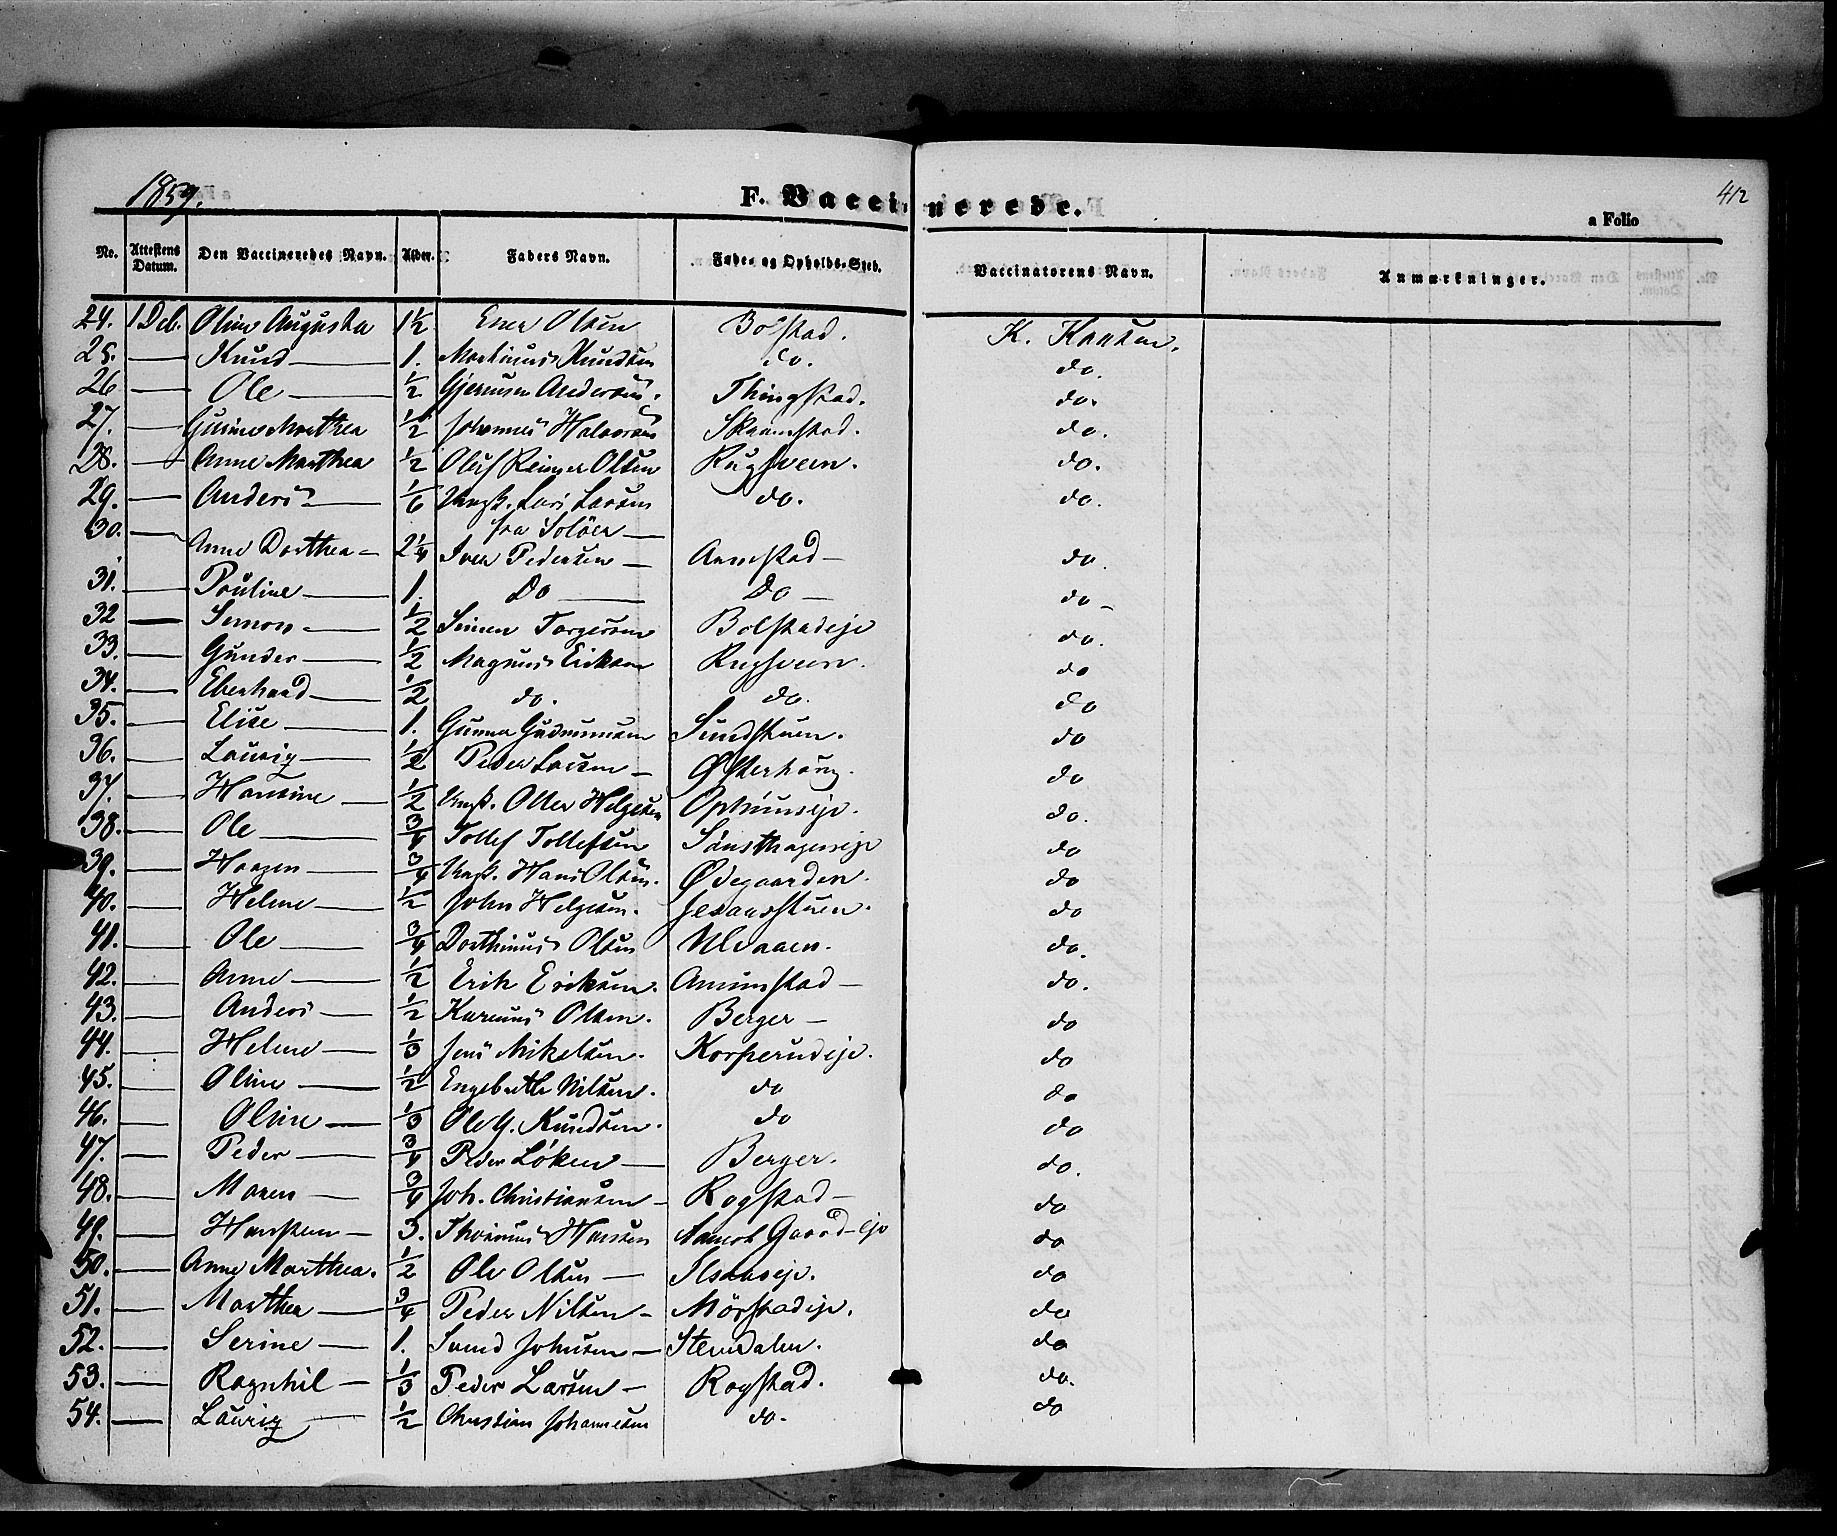 1859. F. Vaccinerede. 412
a Folio
No. Attestens Datum. Den Vaccineredes Navn. Alder. Faders Navn. Føde- og Opholds-Sted. Vaccinatorens Navn. Anmærkninger.
24. 1 Deb. Oline Augusta 1½ Ener Olsen Bolstad. K.
25. — Knud — 1. Martinus Knudsen do. do.
26 — Ole — ½ Andersen. Thingstad. do.
27. — Marthea ½ Johannes Halvorsen Skaanstad. do.
28. — Anne Marthea ½ Oluf Reinger Olsen Rugsveen. do.
29. — Anders — 1/6 Ungk. Lars Larsen do. do.
fra Solöer —
30. — Anne Dorthea — 2¼ Iver Pedersen — Arnestad — do.
31. — Pauline — 1. Do — Do — do —
32 — Simon — ½ Simen Torgersen Bolstadeje do.
33. — Gunder — ½ Magnus Eriksen Rugsveen. do
34. — Eberhard — ½ do. do. do
35. — Elise — 1. Gunner Gudmunsen Sundstuen. do
36. — Lauriz — ½ Peder Larsen — Østerhaug. do
37. — Hansine — ½ Ungk. Otter Helgesen Ophuuseje. do.
38. — Ole — ¾ Tollef Tollefsen Sønsthageneje do
39. — Haagen — ¾ Ungk. Hans Olsen. Ødegaarden. do
40. — Helene — ½ John Helgesen. do
41. — Ole — ¾ Dorthinus Olsen Ulvaaen. do.
42. — Anne — ½ Erik Eriksen. Amumstad — do.
43. — Anders — ½ Karenus Olsen. Berger — do
44. — Helene — 1/3 Jens Mikelsen. Korperudeje. do
45. — Oline — ½ Engebrethe Nilsen. do do
46. — Oline — 1/3 Ole G. Knudsen. do do
47. — Peder — ¾ Peder Løken — Berger. do.
48. — Maren — ¾ Joh. Christiansen — Rogstad — do
49. — Hansteen — 3. Hansen Gaard-eje do
50. — Anne Marthea. ½ Ole Olsen — do
51. — Marthea — ¾ Peder Nilsen — Mörstadeje. do
52. — Serine — 1. Svend Johnsen — Stensdalen. do
53. — Ragnhil — 1/3 Peder Larsen — Rogstad. do.
54. — Lauriz — ½ Christian Johannesen do. do